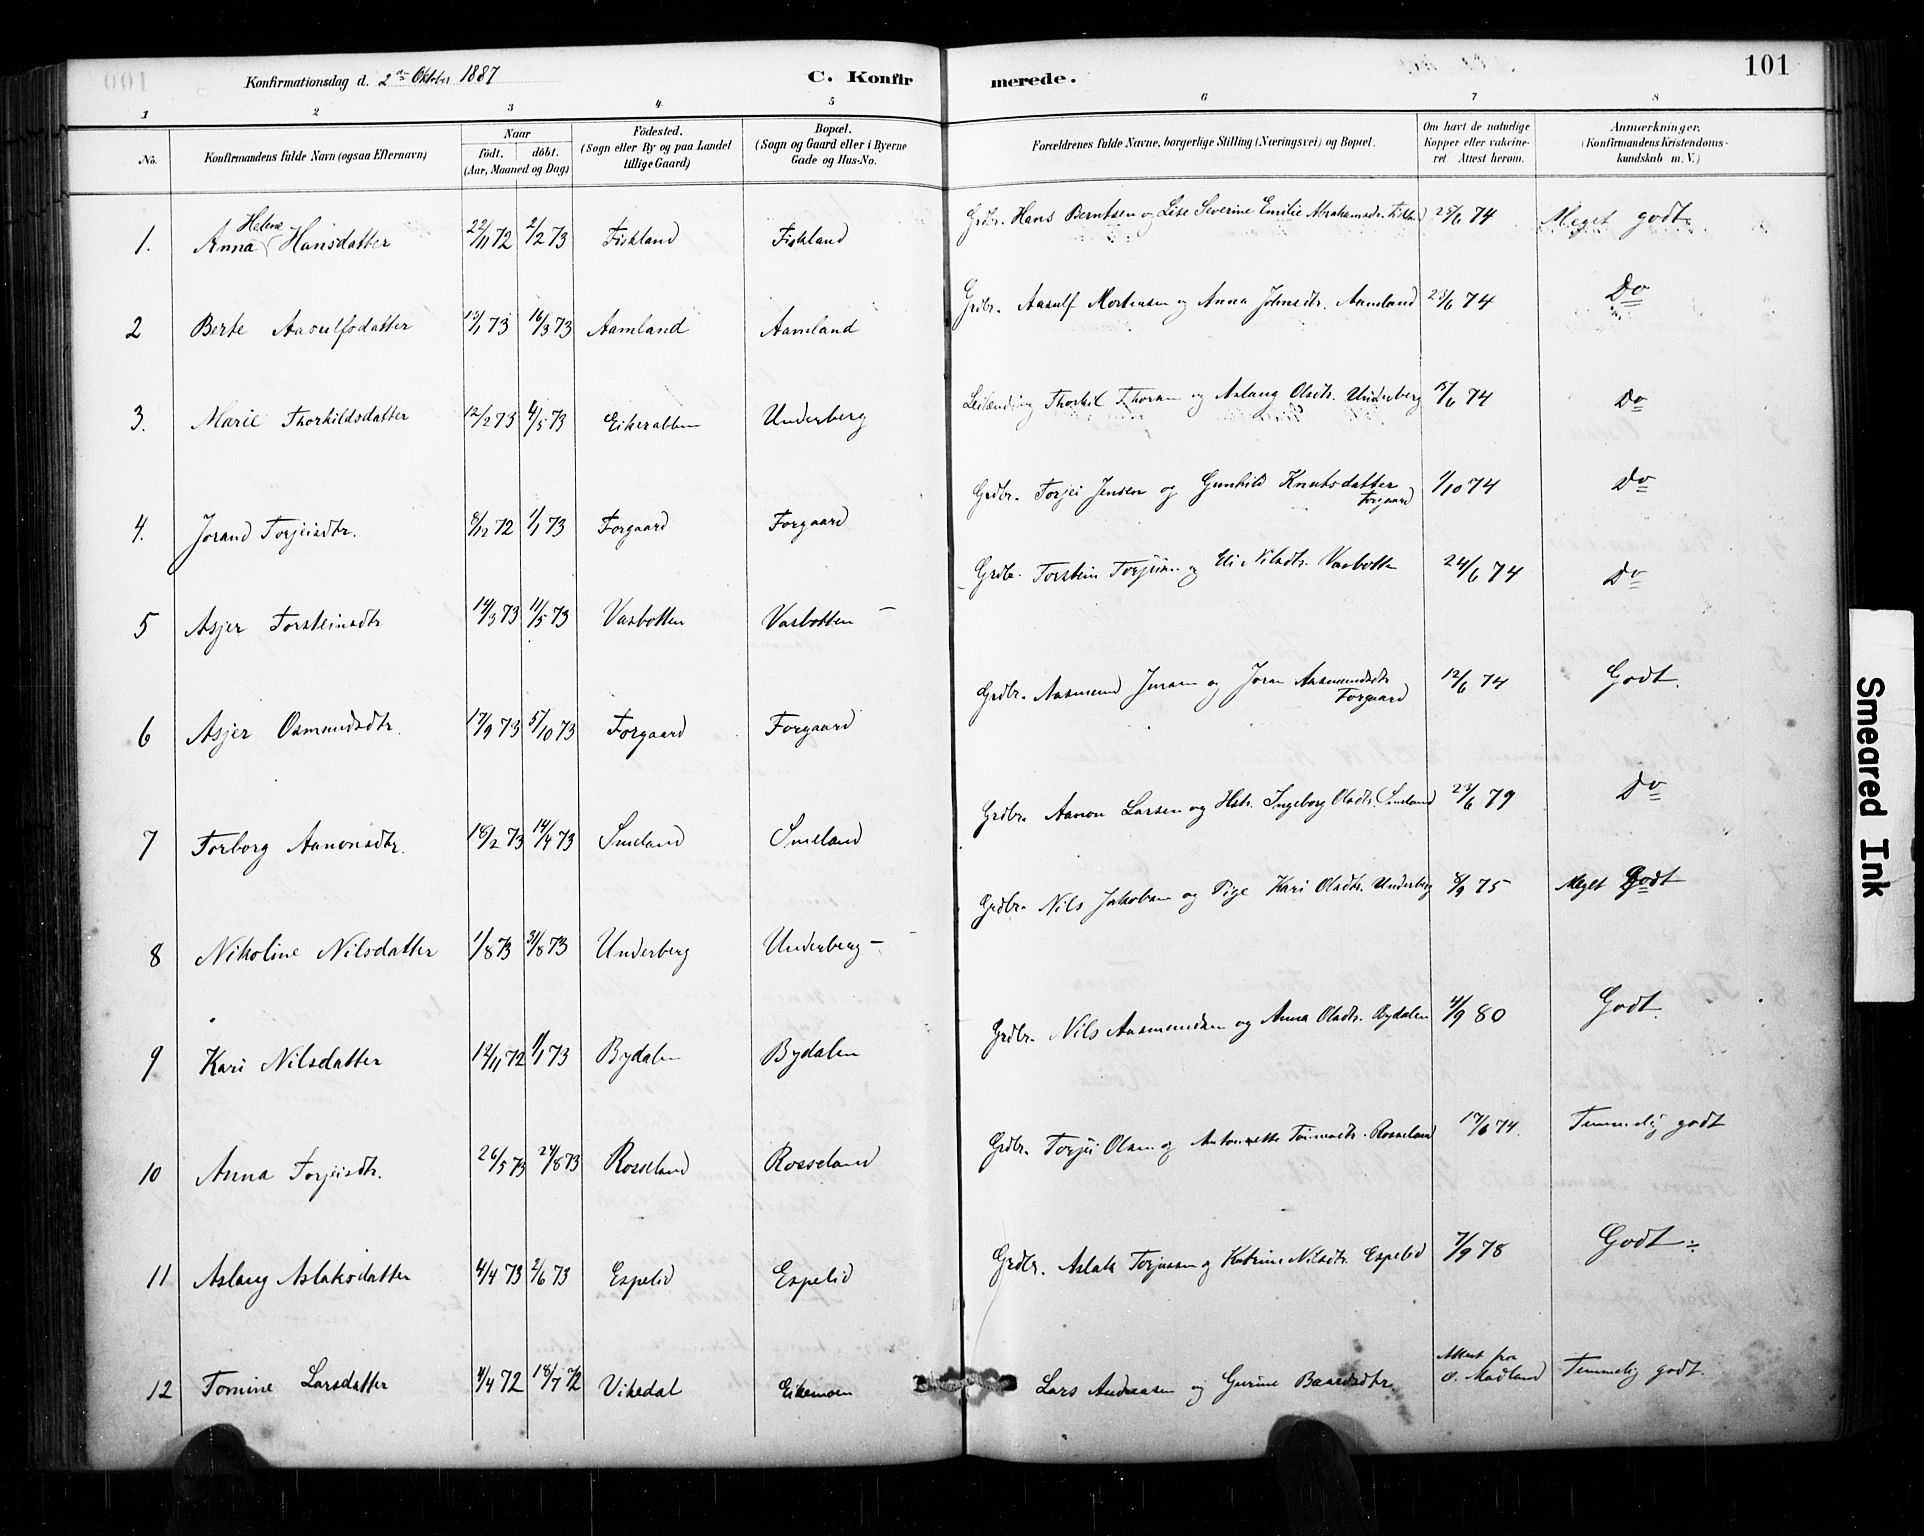 Konfirmationsdag d. 2den Oktober 1887
C. Konfir merede.
101
1 2 3 4 5 6 7 8
No.
Konfirmandens fulde Navn (ogsaa Efternavn)
Naar
födt. döbt.
(Aar, Maaned og Dag)
Födested.
(Sogn eller By og paa Landet
tillige Gaard)
Bopæl.
(Sogn og Gaard eller i Byerne
Gade og Hus-No.
Forældrenes fulde Navne, borgerlige Stilling (Næringsvei) og Bopæl.
Om havt de naturlige
Kopper eller vakcine-
ret Attest herom.
Anmærkninger.
(Konfirmandens Kristendoms-
kundskab m. V.)
1. Anna Helene Hansdatter 22/11 72 2/2 73 Fiskland Fiskland Grdbr. Hans Berntsen og Lise Severine Emilie Abrahamsdr. 25/6 74 Meget godt.
2 Berte Aasulfsdatter 13/1 73 16/3 73 Aamland Aamland Grdbr. Aasulf Mortensen og Anna Johnsdtr. Aamland 23/6 74 Do
3. Marie Thorkildsdatter 12/2 73 4/5 73 Eikerabben Underberg Leilænding Thorkil Thorsen og Aslaug Olsdtr. Underberg 13/6 74 Do
4. Jorand Torjeisdtr. 8/12 72 1/1 73 Torgaard Torgaard Grdbr. Torjei Jensen og Gunhild Knutsdatter Torgaard 1/10 74 Do
5 Asjer Torsteinsdtr 14/3 73 11/5 73 Vasbotten Vasbotten – Grdbr. Torstein Torjusen og Eli Nilsdtr. Vasbotten 24/6 74 Do
6 Asjer Osmundsdtr. 17/9 73 5/10 73 Torgaard Torgaard Grdbr. Aasmund Jensen og Joran Aasmundsdtr Torgaard 12/6 74 Godt.
7 Torborg Aanonsdtr. 16/2 73 14/4 73 Smeland Smeland Grdbr. Aanon Larsen og Hstr. Ingeborg Olsdtr. Smeland 23/6 79 Do
8 Nikoline Nilsdatter 1/8 73 31/8 73 Underberg Underberg – Grdbr. Nils Jakobsen og Pige Kari Olsdtr. Underberg 8/9 75 Meget Godt
9 Kari Nilsdatter 12/11 72 1/1 73 Bydalen Bydalen Grdbr. Nils Aasmundsen og Anna Olsdtr. Bydalen 4/9 80 Godt.
10 Anna Torjeisdtr. 26/5 73 24/8 73 Rosseland Rosseland Grdbr. Torjei Olsen og Antonette Rosseland 17/6 74. Temmelig godt
11 Aslaug Aslaksdatter 4/4 73 2/6 73 Espelid Espelid Grdbr. Aslak Torjusen og Katrine Nilsdtr. Espelid 7/9 78 Godt.
12 Tomine Larsdatter 4/4 72 18/7 72 Vikedal Eikemoen Lars Andreasen og Gurine Baardsdtr. Attest fra O. Madland Temmelig godt.
Smeared Ink